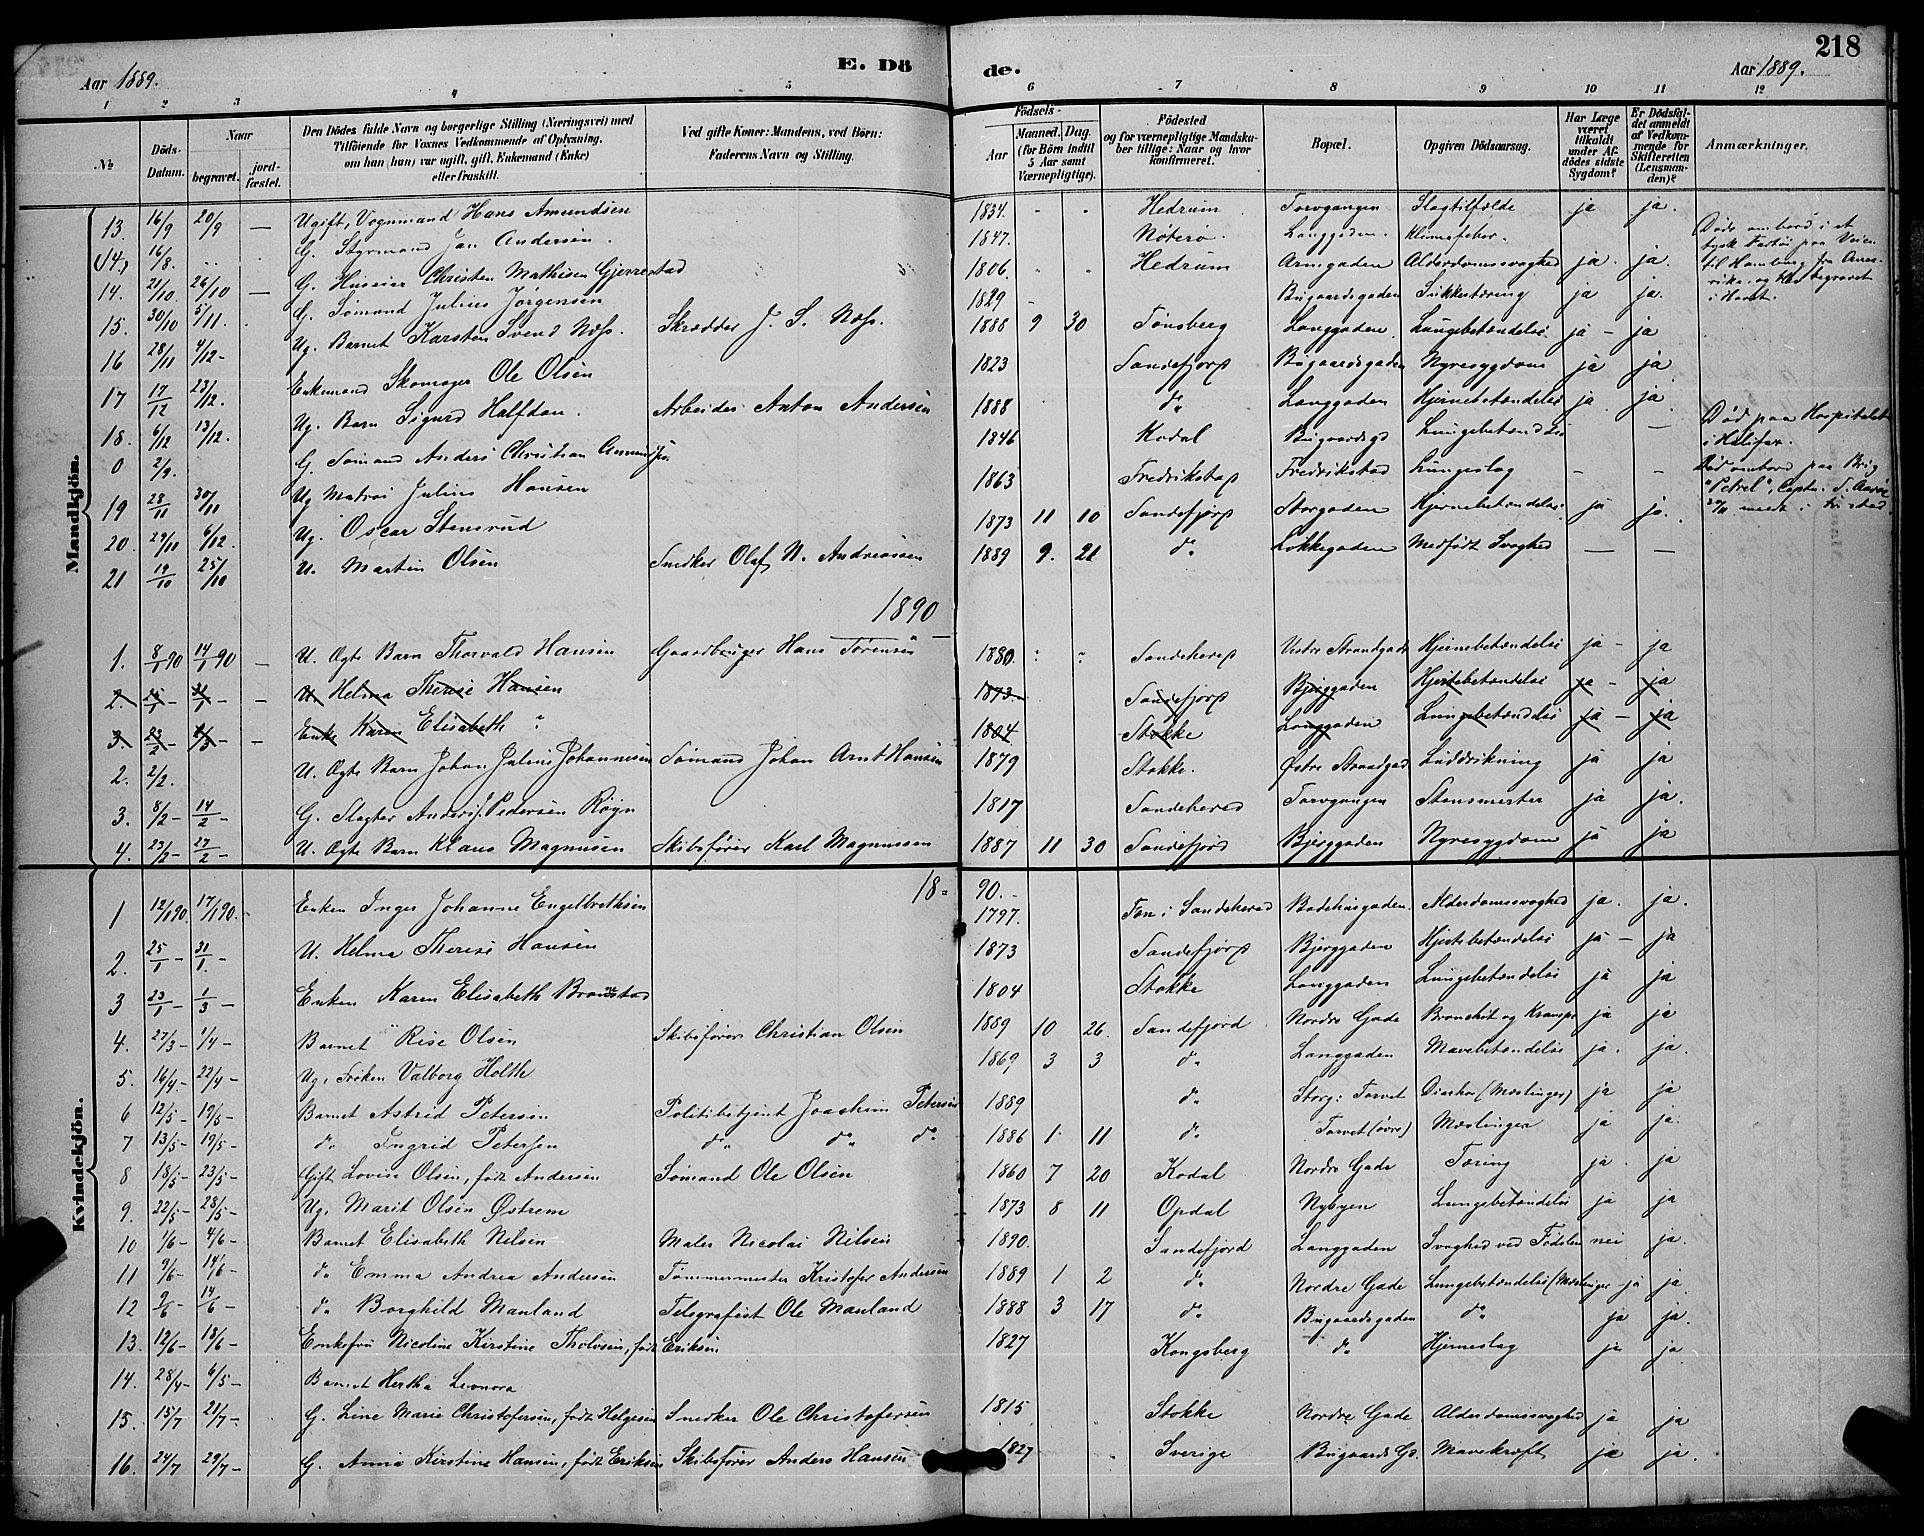 218
Aar 1889. E. Dö de. Aar 1889.
1 2 3 4 5 6 7 8 9 10 11 12
№ Döds-Datum. Naar begravet. jord-fæstet. Den Dödes fulde Navn og borgerlige Stilling (Næringsvei) med Tilföiende for Voxnes Vedkommende af Oplysning, om han (hun) var ugift, gift, Enkemand (Enke) eller fraskilt. Ved gifte Koner: Mandens, ved Börn: Faderens Navn og Stilling. Födsels- Aar Maaned. Dag. (for Börn indtil 5 Aar samt Værnepligtige). Födested og for værnepligtige Mandskaber tillige: Naar og hvor konfirmeret. Bopæl. Opgiven Dödsaarsag. Har Læge været tilkaldt under Afdödes sidste Sygdom? Er Dödsfaldet anmeldt af Vedkommende for Skifteretten (Lensmanden)? Anmærkninger.
Mandkjön.
13. 16/9 20/9 — Ugift, Vognmand Hans Amundsen 1834. " " Hedrum Torvgangen Slagtilfælde ja ja.
(14.) 16/8. G. Styrmand Jan Andersen. 1847. Nöterö. Langgaden. Klimafeber. Döde ombord i et tysk Fartöi paa Veien til Hamburg fra Amerika, og blev begravet i Havet.
14. 21/10. 26/10 — G. Huseier Christen Mathisen Gjerrestad 1806. " " Hedrum Alderdomssvaghed ja. ja.
15. 30/10 5/11. G. Sömand Julius Jörgensen 1829 Bugaardsgaden Sukkertæring ja ja.
16 28/11 4/12- Ug. Barnet Karsten Svend Næss. Skrædder J. S. Næss. 1888 9 30 Tönsberg Langgaden Lungebetændelse ja — ja
17 17/12 23/12. Enkemand Skomager Ole Olsen 1823 Sandefjord Bugaardsgaden Nyresygdom ja ja
18. 6/12 13/12. Ug. Barn Sigurd Halfdan. Arbeider Anton Andersen 1888 do Langgaden Hjernebetændelse ja. ja
0 2/9. G. Sömand Anders Christian 1846 Kodal Bugaardsgd Lungebetændelse — Död paa Hospitalet i Halifax.
19 28/11 30/11 Ug Matros Julius Hansen 1863 Fredrikstad Fredrikstad Lungeslag — — Död ombord paa Brig "Petrel", Captn.
20. 29/11 6/12. Ug. Oscar Stensrud 1873 11 10 Sandefjord Storgaden Hjernebetændelse. ja ja.
21 19/10 25/10 U. Martin Olsen Snedker Olaf N. Andreassen 1889 9. 21 do Lökkegaden Medfödt Svaghed — —
1890
1. 8/1 90 14/1 90 — U. Ægte Barn Thorvald Hansen Gaardbruger Hans Sörensen 1880. " " Sandeherred Vestre Strandgade Hjernebetændelse ja — ja
2. 25/1 - 31/1 - — U. Helma Therese Hansen 1873. Sandefjord Bjerggaden Hjertebetændelse ja - ja
3. 23/2 - 1/3 - — Enke Karen Elisabeth " 1804. Stokke Langgaden Lungebetændelse ja — ja
2. 2/2. U. Ægte Barn Johan Julius Johannesen Sömand Johan Arnt Hansen 1879 Stokke. Östre Strandgad ja ja
3. 8/2 - 14/2 - G. Slagter Anders J. Pedersen Rögn 1817 Sandeherred Torvgangen Stensmerter ja ja.
4. 23/2 - 27/2 - U. Ægte Barn Klaus Magnusen Skibsförer Karl Magnussen 1887 11 30 Sandefjord Bjerggaden Nyresygdom ja ja
18= 90.-
Kvindekjön.
1 12/1 90. 17/1 90. - Enken Inger Johanne Engelbrethsen 1797. i Sandeherred Badehusgaden. Alderdomssvaghed ja. ja.
2. 25/1 - 31/1. - U. Helma Therese Hansen 1873 Sandefjord Bjerggaden Hjertebetændelse ja — ja
3 23/1 - 1/3 - Enken Karen Elisabeth Bronstad 1804 Stokke Langgaden Lungebetændelse ja ja
4. 27/3 - 1/4 - Barnet Rise Olsen Skibsförer Christian Olsen 1889 10 26. Sandefjord Nordre Gade Bronchit og Krampe ja ja
5. 16/4 - 22/4 - Ug. Fröken Valborg Holth 1869 3 3 do Langgaden Mavebetændelse ja. ja.
6 12/5 - 19/5 - Barnet Astrid Petersen Politibetjent Joachim Petersen 1889 do Storg: Torvet Diarhoe (Mæslinger) ja ja
7 13/5 - 19/5 - do Ingrid Petersen do do do 1886 1. 11 do Torvet (övre) Mæslinger ja ja.
8 18/5 - 23/5 - Gift Lovise Olsen, födt Andersen Sömand Ole Olsen 1860 7 20 Kodal Nordre Gade Tæring ja. ja
9. 22/5 - 28/5 - Ug. Marit Olsen Östrem 1873 8 11 Opdal Nybyen Lungebetændelse ja ja
10 1/6 - 4/6 - Barnet Elisabeth Nilsen Maler Nicolai Nilsen 1890. Sandefjord Langgaden Svaghed ved Födselen nei ja.
11 9/6 - 14/6 - do Emma Andrea Andersen Tömmermester Kristofer Andersen 1889 1 2 do Nordre Gade Lungebetændelse (Mæslinger ja ja.
12 9/6 - 14/6 - do Borghild Mauland Telegrafist Ole Mauland 1888 3 17 do Bugaardsgaden do ja ja.
13. 12/6 - 18/6 - Enkefru Nicoline Kirstine Tholvsen, födt Eriksen 1827 Kongsberg do Hjerneslag ja ja
14. 28/4 - 6/5 - Barnet Hertha Leonora
15. 15/7 21/7 - G. Line Marie Christofersen, födt Helgesen Snedker Ole Christofersen 1815 " Stokke Nordre Gade Alderdomssvaghed ja ja
16. 24/7 29/7 - G. Anna Kirstine Hansen, födt Eriksen Skibsförer Anders Hansen 1827 " Sverige Bugaards Gd. Mavekræft ja ja.